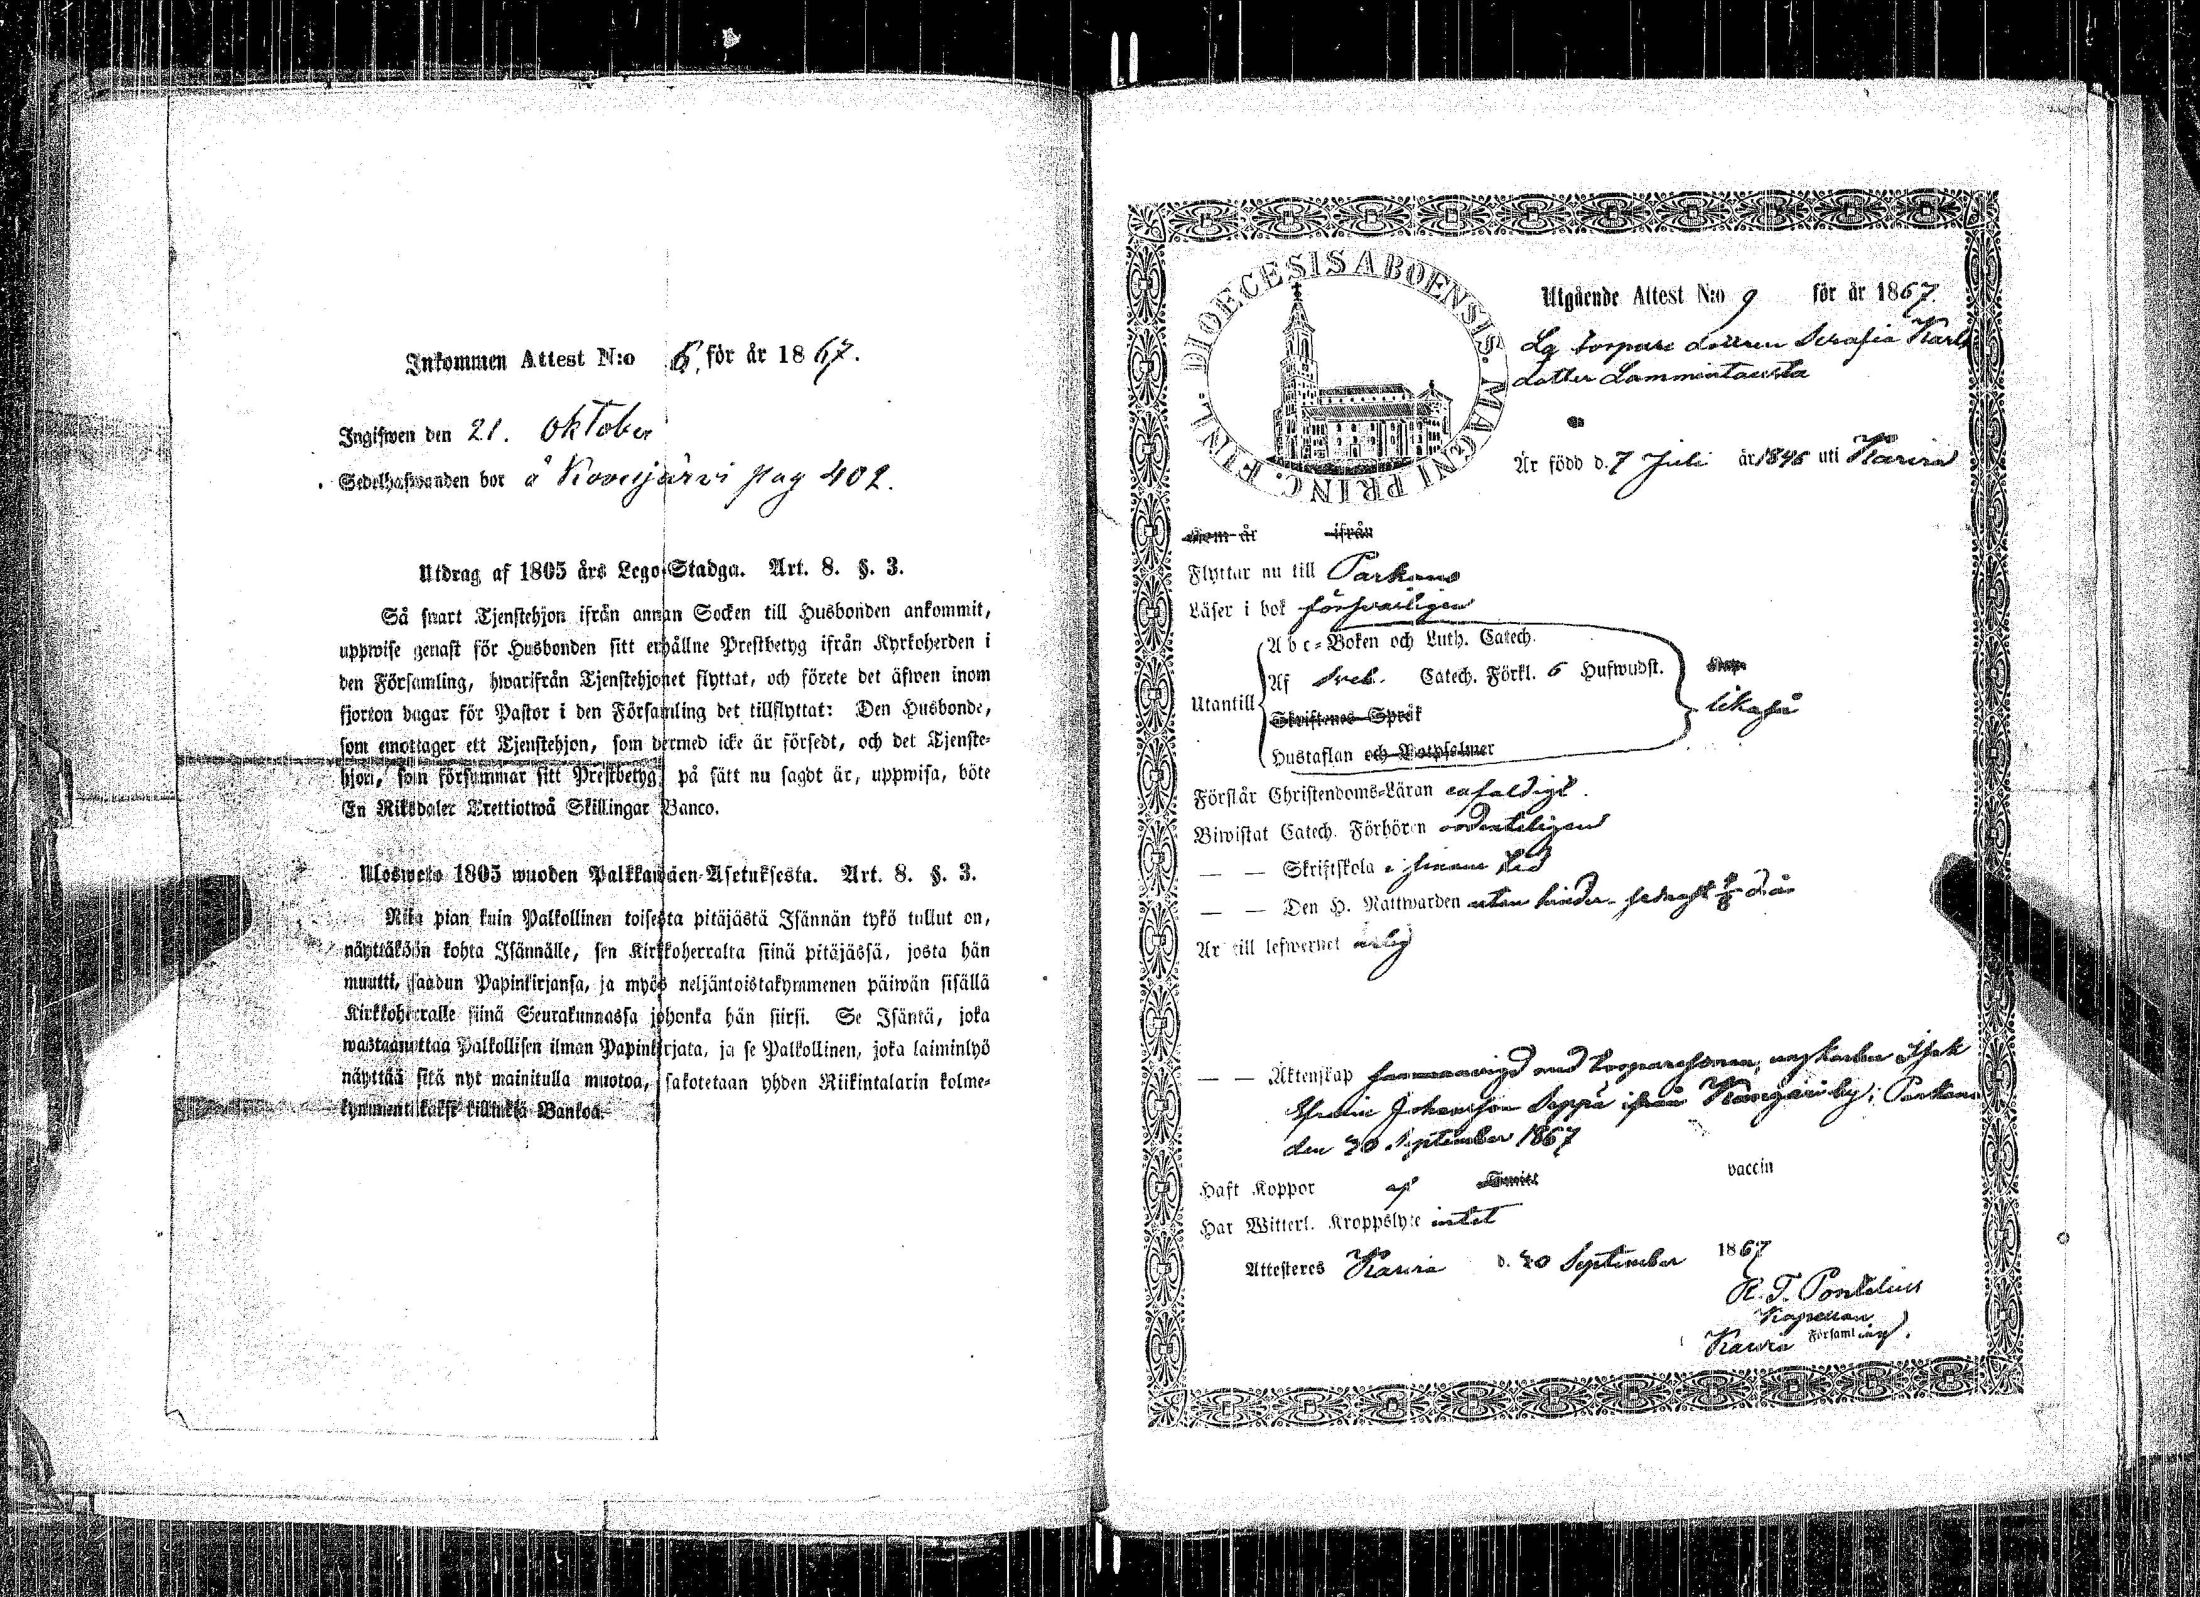 Inkommen Attest N:o 6. för år 1867.
Ingifwen den 21. oktober
Sedelhafwanden bor å Kovesjärvi pag 402.
Utdrag af 1805 års Lego-Stadga. Art. 8. §. 3.
Så snart Tjenstehjon ifrån annan Socken till Husbonden ankommit,
uppwise genast för Husbonden sitt erhållne Prestbetyg ifrån Kyrkoherden i
den Församling, hwarifrån Tjenstehjonet flyttat, och förete det äfwen inom
fjorton dagar för Pastor i den Församling det tillflyttat: Den Husbonde,
som emottager ett Tjenstehjon, som dermed icke är försedt, och det Tjenste-
hjon, som försummar sitt Prestbetyg på sätt nu sagdt är, uppwisa, böte
En Riksdaler Trettiotwå Skillingar Banco.
Ulosweto 1805 wuoden Palkkawäen-Asetuksesta. Art. 8. §. 3.
Niin pian kuin Palkollinen toisesta pitäjästä Isännän tykö tullut on,
näyttäköön kohta Isännälle, sen Kirkkoherralta siinä pitäjässä, josta hän
muutti, saadun Papinkirjansa, ja myös neljäntoistakymmenen päiwän sisällä
Kirkkoherralle siinä Seurakunnassa johonka hän siirsi. Se Isäntä, joka
wastaanottaa Palkollisen ilman Papinkirjata, ja se Palkollinen, joka laiminlyö
näyttää sitä nyt mainitulla muotoa, sakotetaan yhden Riikintalarin kolme-
kymmentäkaksi killinkiä Bankoa.
DIOECESIS ABOENSIS. MAGNI PRINC. FINL.
Utgående Attest N:o 9 för år 1867.
Lg torpare dottren Serafia Karls
dotter Lammintausta
Är född d. 7 Juli år 1846 uti Karvia
Kom år ifrån
Flyttar nu till Parkano
Läser i bok försvarligen
Abc-Boken och Luth. Catech.
Af Sveb. Catech. Förkl. 6 Hufwudst.
Utantill likaså
Skriftenes Språk
Hustaflan och Botpsalmer
Förstår Christendoms-Läran enfaldigt.
Biwistat Catech. Förhören ordenteligen
— — Skriftskola i sinom tid
— — Den H. Nattwarden utan hinder senast d. å.
Är till lefwernet ärlig
— — Äktenskap sammanvigd med torparesonen, ungkarlen Isak
Efraim Johansson Seppä ifrån Kangari by i Parkano
den 20 September 1867
Haft Koppor af vaccin
Har Witterl. Kroppslyte intet
Attesteres Karvia d. 20 September 1867
Kapellan
Karvia Församling.